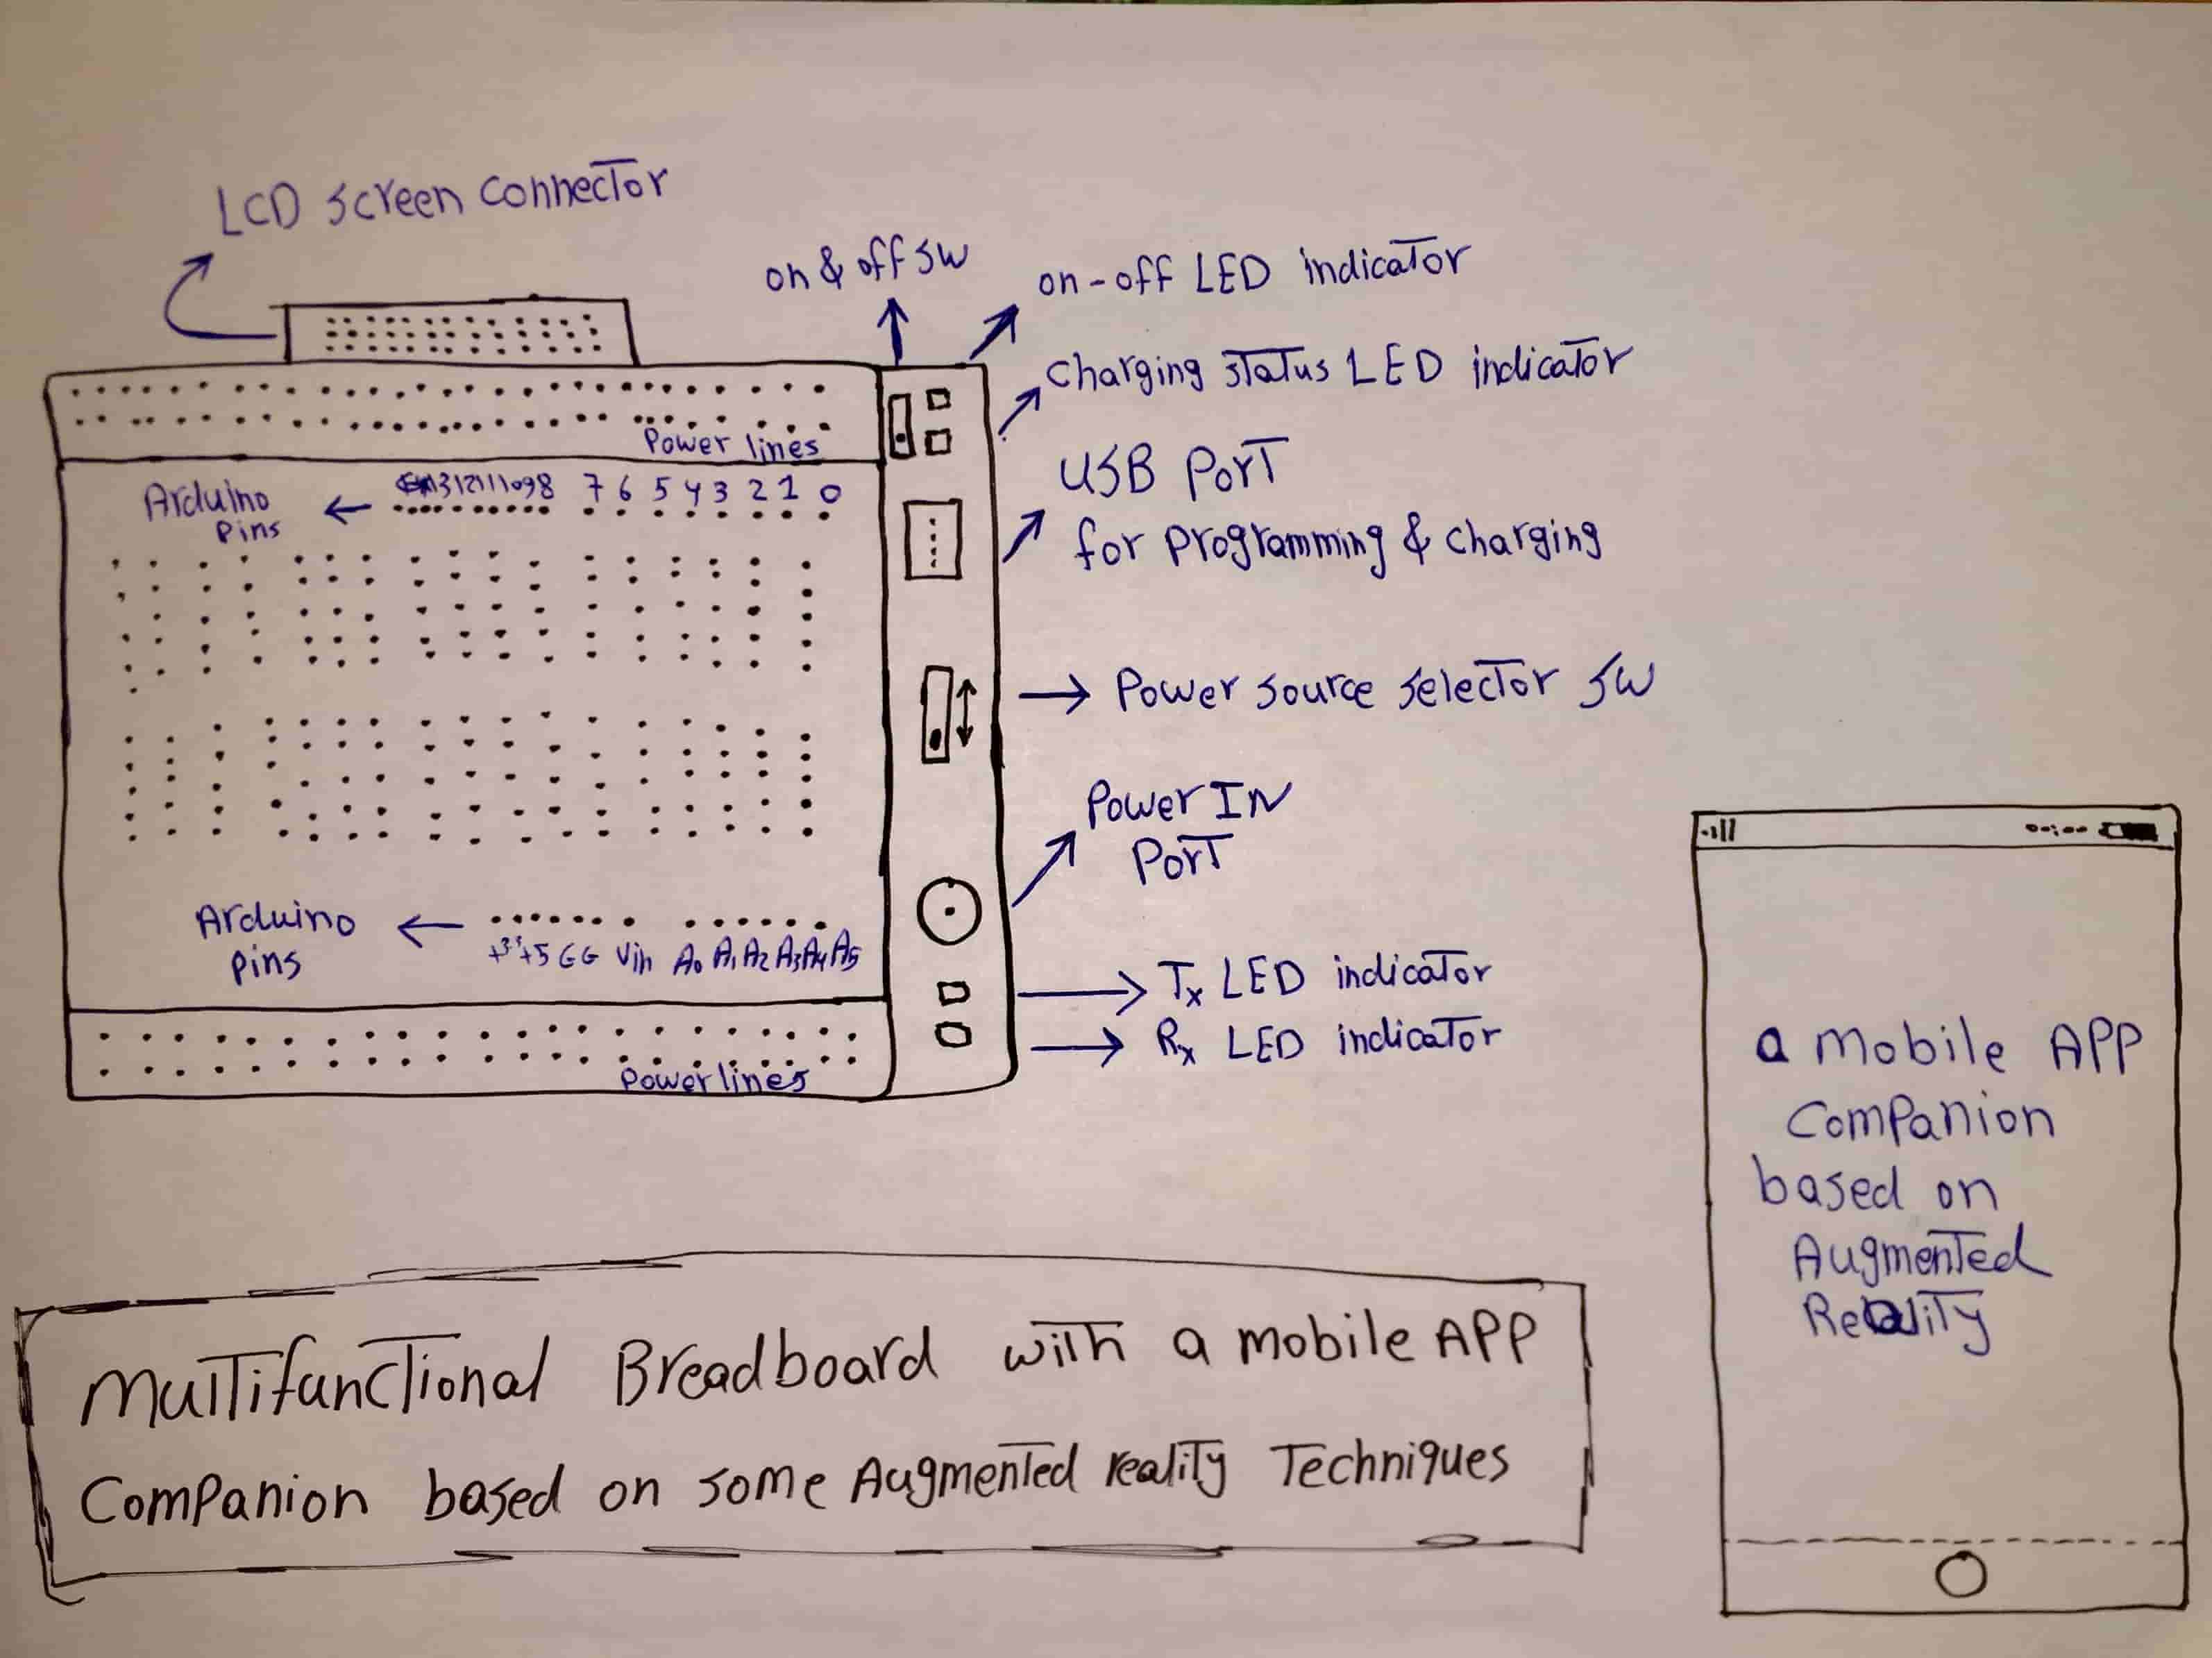 LCD screen connector
on & off sw
on-off LED indicator
charging status LED indicator
Power lines
USB Port
for programming & charging
Arduino
Pins
13 12 11 10 9 8 7 6 5 4 3 2 1 0
Power source selector sw
Power IN
Port
Arduino
Pins
+3.3 +5 G G Vin A0 A1 A2 A3 A4 A5
Tx LED indicator
Rx LED indicator
Power lines
a mobile APP
Companion
based on
Augmented
Reality
Multifunctional Breadboard with a mobile APP
Companion based on some Augmented reality Techniques